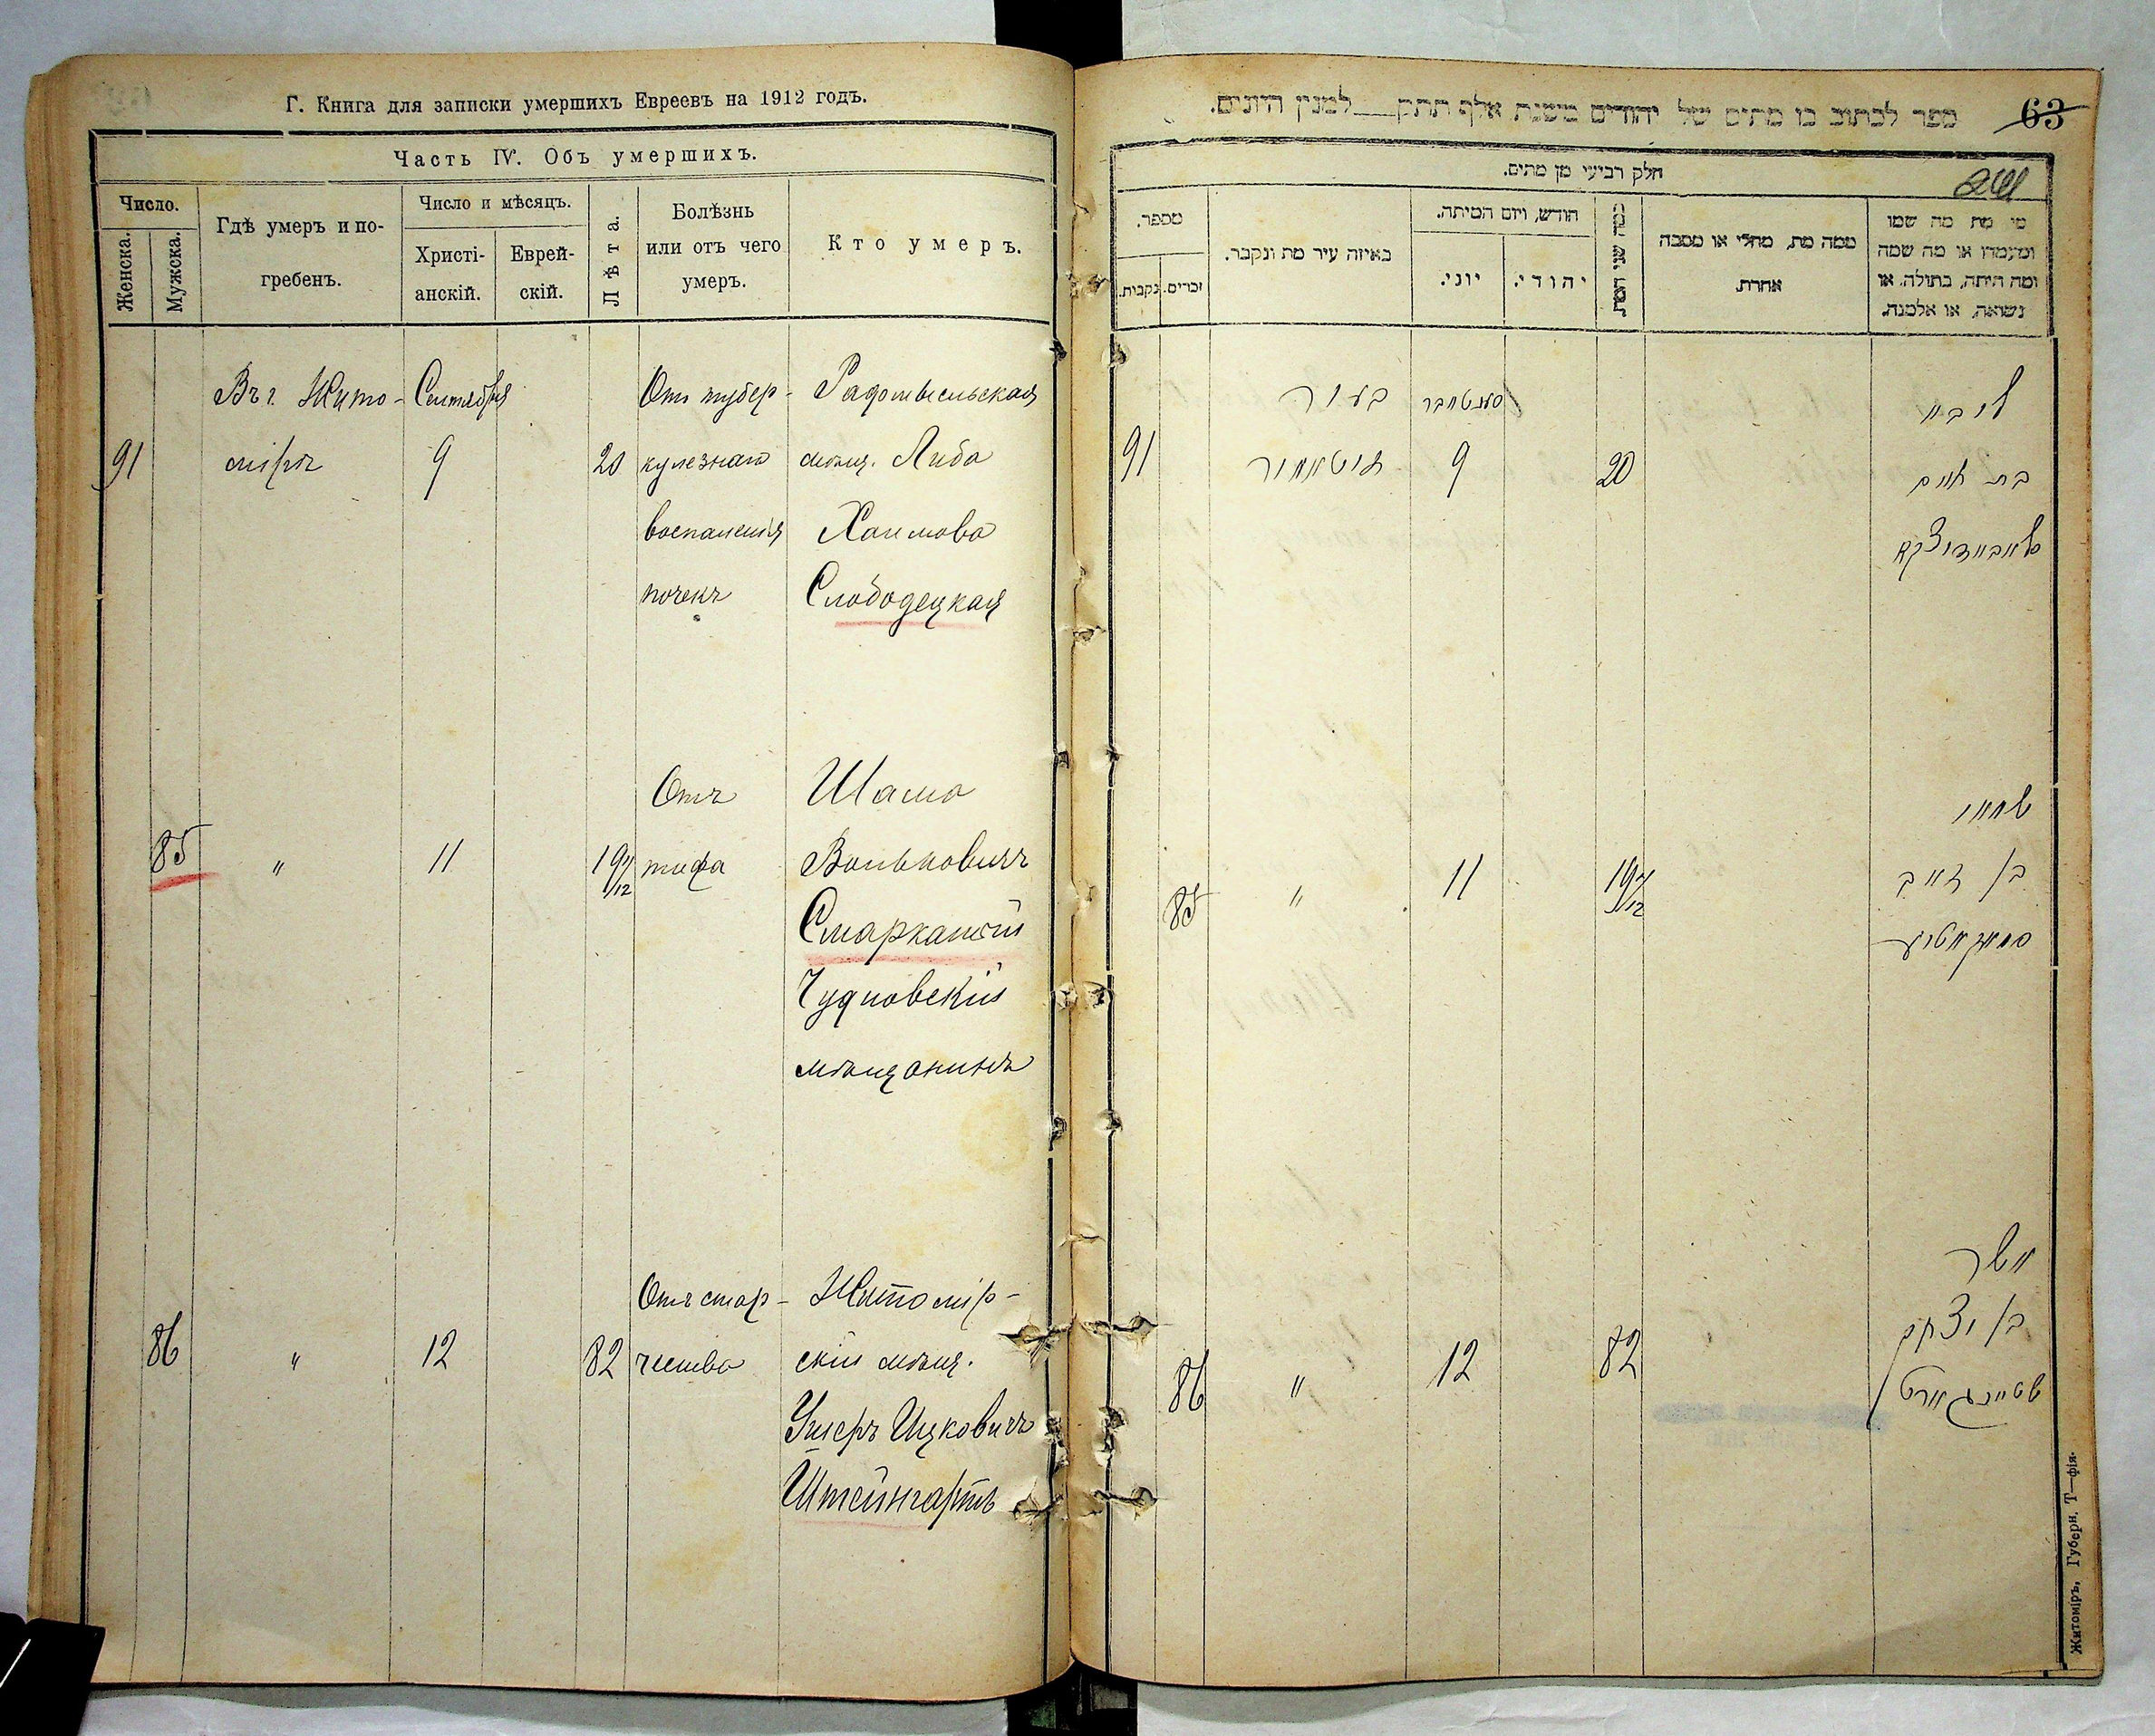 Г. Книга для записки умершихъ Евреевъ на 1912 годъ.
Часть IV. Объ умершихъ.
Число.
Женска.
Мужска.
Гдѣ умеръ и по-
гребенъ.
Число и мѣсяцъ.
Христі-
анскій.
Еврей-
скій.
Лѣта.
Болѣзнь
или отъ чего
умеръ.
Кто умеръ.
91
Въ г. Жито-
мірѣ
Сентября
9
20
От тубер-
кулезнаго
воспаленія
почекъ
мѣщ. Либа
Хаимова
Слободецкая
85
"
11
19 7/12
Отъ
тифа
Шама
Вольковичъ
Чудновскій
мѣщанинъ
86
"
12
82
Отъ стар-
чества
Житомір-
скій мѣщ.
Ушеръ Ицковичъ
Штейнгартъ
ספר לכתוב בו מתים של יהודים משנת אלף תתק למנין היונים.
63
חלק רביעי מן מתים.
מספר.
נקבות.
זכרים.
באיזה עיר מת ונקבר.
חודש, ויום המיתה.
יוני.
יהודי.
כמה שני המת
ממה מת, מחלי או מסבה
אחרת.
מי מת מה שמו
ומעמדו או מה שמה
ומה היתה, בתולה, או
נשואה, או אלמנה.
91
בעיר
זיטאמיר
סענטאבר
9
20
ליבא
בת חיים
סלאבאדיצקא
85
"
11
19 7/12
בן זאב
86
"
12
82
אשר
בן יצחק
שטיינגארט
Житоміръ, Губерн. Т—фія.